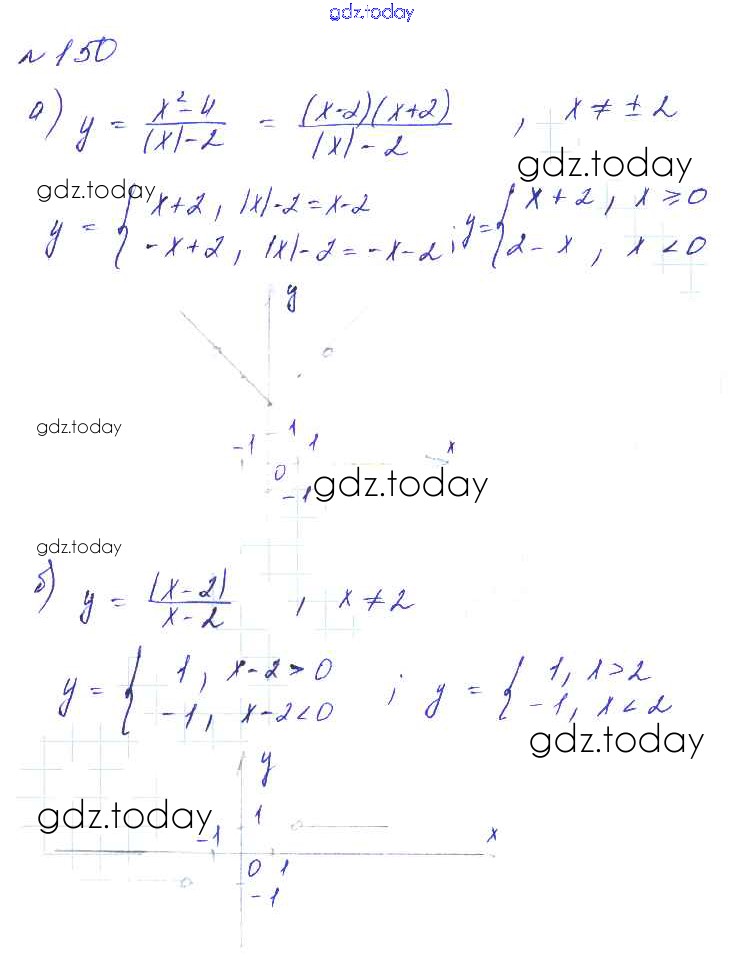 gdz.today
№ 150
а) y = (x² - 4)/(|x| - 2) = ((x-2)(x+2))/(|x| - 2) , x ≠ ± 2
gdz.today
gdz.today
y = { x+2, |x|-2 = x-2 ; y = { x + 2, x ≥ 0
-x+2, |x|-2 = -x-2 2 - x, x < 0
y
gdz.today
1
-1 1 x
0
-1 gdz.today
gdz.today
б) y = |x-2|/(x-2) , x ≠ 2
y = { 1, x-2 > 0 ; y = { 1, x > 2
-1, x-2 < 0 -1, x < 2
gdz.today
y
gdz.today 1
-1 x
0 1
-1